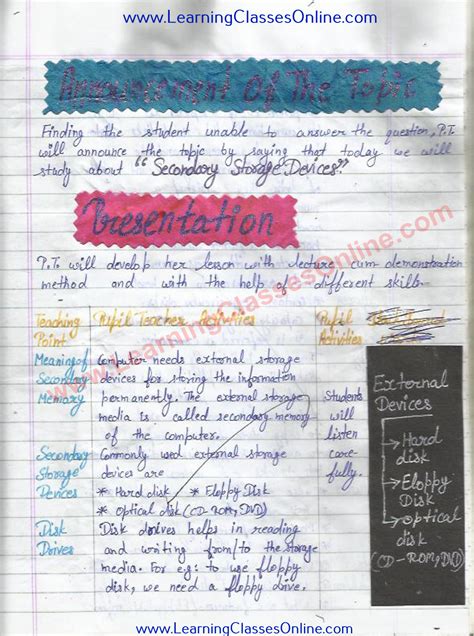 www.LearningClassesOnline.com
Announcement Of The Topic
Finding the student unable to answer the question, P.T.
will announce the topic by saying that today we will
study about "Secondary Storage Devices".
Presentation
P.T. will develop her lesson with lecture cum demonstration
method and with the help of different skills.
www.LearningClassesOnline.com
Teaching Point
Pupil Teacher Activities
Pupil Activities
Meaning of Secondary Memory
Computer needs external storage
devices for storing the information
permanently. The external storage
media is called secondary memory
of the computer.
Students
will
listen
care-
fully.
Secondary Storage Devices
Commonly used external storage
devices are
* Hard disk * Floppy Disk
* Optical disk (CD-ROM, DVD)
Disk Drives
Disk drives helps in reading
and writing from/to the storage
media. For e.g: to use floppy
disk, we need a floppy drive.
External
Devices
→ Hard
disk
→ Floppy
Disk
→ Optical
disk
(CD-ROM, DVD)
www.LearningClassesOnline.com